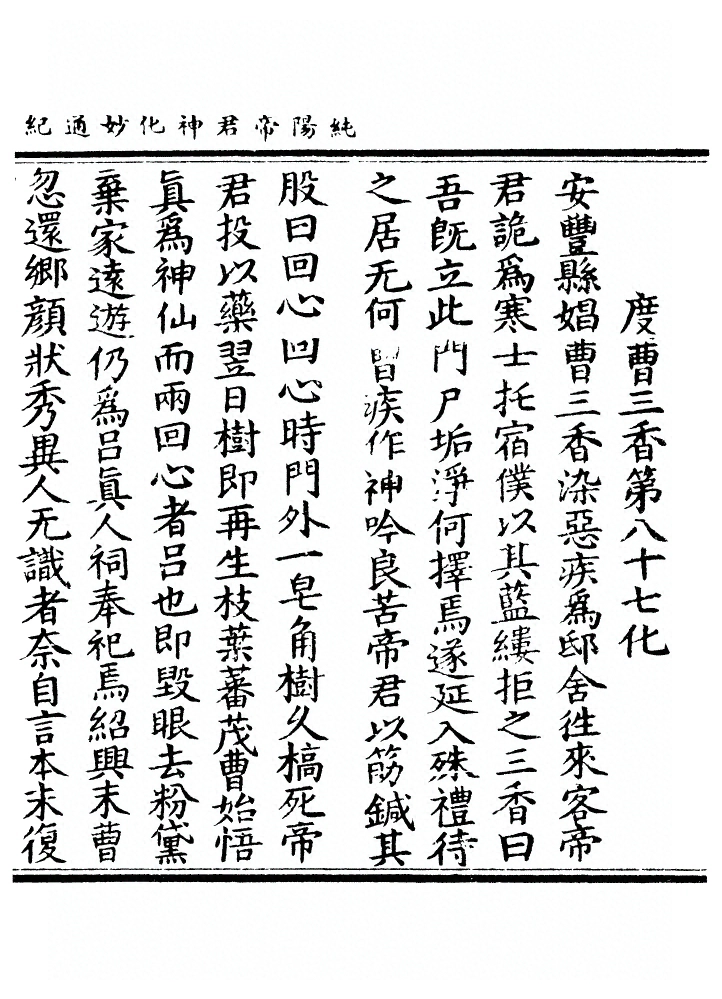 純陽帝君神化妙通紀
度曹三香第八十七化
安豐縣娼曹三香染惡疾爲邸舍徃來客帝
君詭爲寒士托宿僕以其藍縷拒之三香曰
吾旣立此門尸垢淨何擇焉遂延入殊禮待
之居无何曹疾作神吟良苦帝君以筯鍼其
股曰回心回心時門外一皂角樹久槁死帝
君投以藥翌日樹即再生枝葉蕃茂曹始悟
眞爲神仙而兩回心者呂也即毀眼去粉黛
棄家遠遊仍爲呂眞人祠奉祀焉紹興末曹
忽還鄉顏狀秀異人无識者奈自言本末復